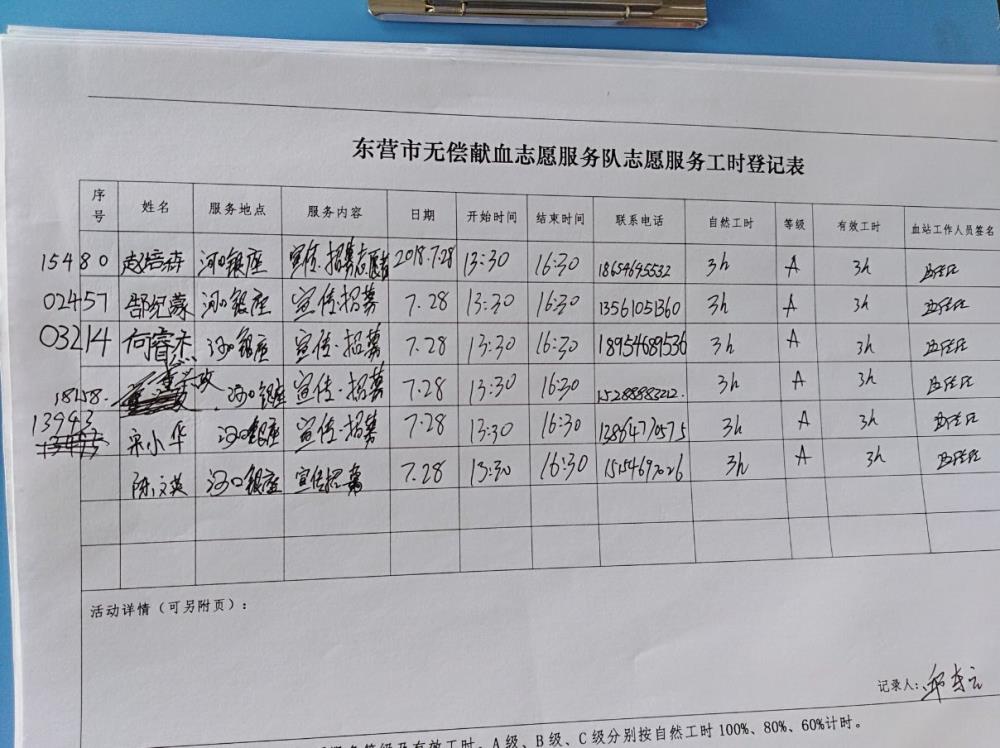 东营市无偿献血志愿服务队志愿服务工时登记表
序号 姓名 服务地点 服务内容 日期 开始时间 结束时间 联系电话 自然工时 等级 有效工时 血站工作人员签名
15480 赵培森 河口银座 宣传·招募志愿者 2018.7.28 13:30 16:30 18654695532 3h A 3h
02457 郜纪蒙 河口银座 宣传·招募 7.28 13:30 16:30 13561051360 3h A 3h
03214 向睿杰 河口银座 宣传·招募 7.28 13:30 16:30 18954689536 3h A 3h
18158. 河口银座 宣传·招募 7.28 13:30 16:30 15288883212. 3h A 3h
13943 宋小华 河口银座 宣传·招募 7.28 13:30 16:30 13864770575 3h A 3h
陈文英 河口银座 宣传招募 7.28 13:30 16:30 3h A 3h
活动详情（可另附页）：
记录人:
等级及有效工时。A级、B级、C级分别按自然工时100%、80%、60%计时。